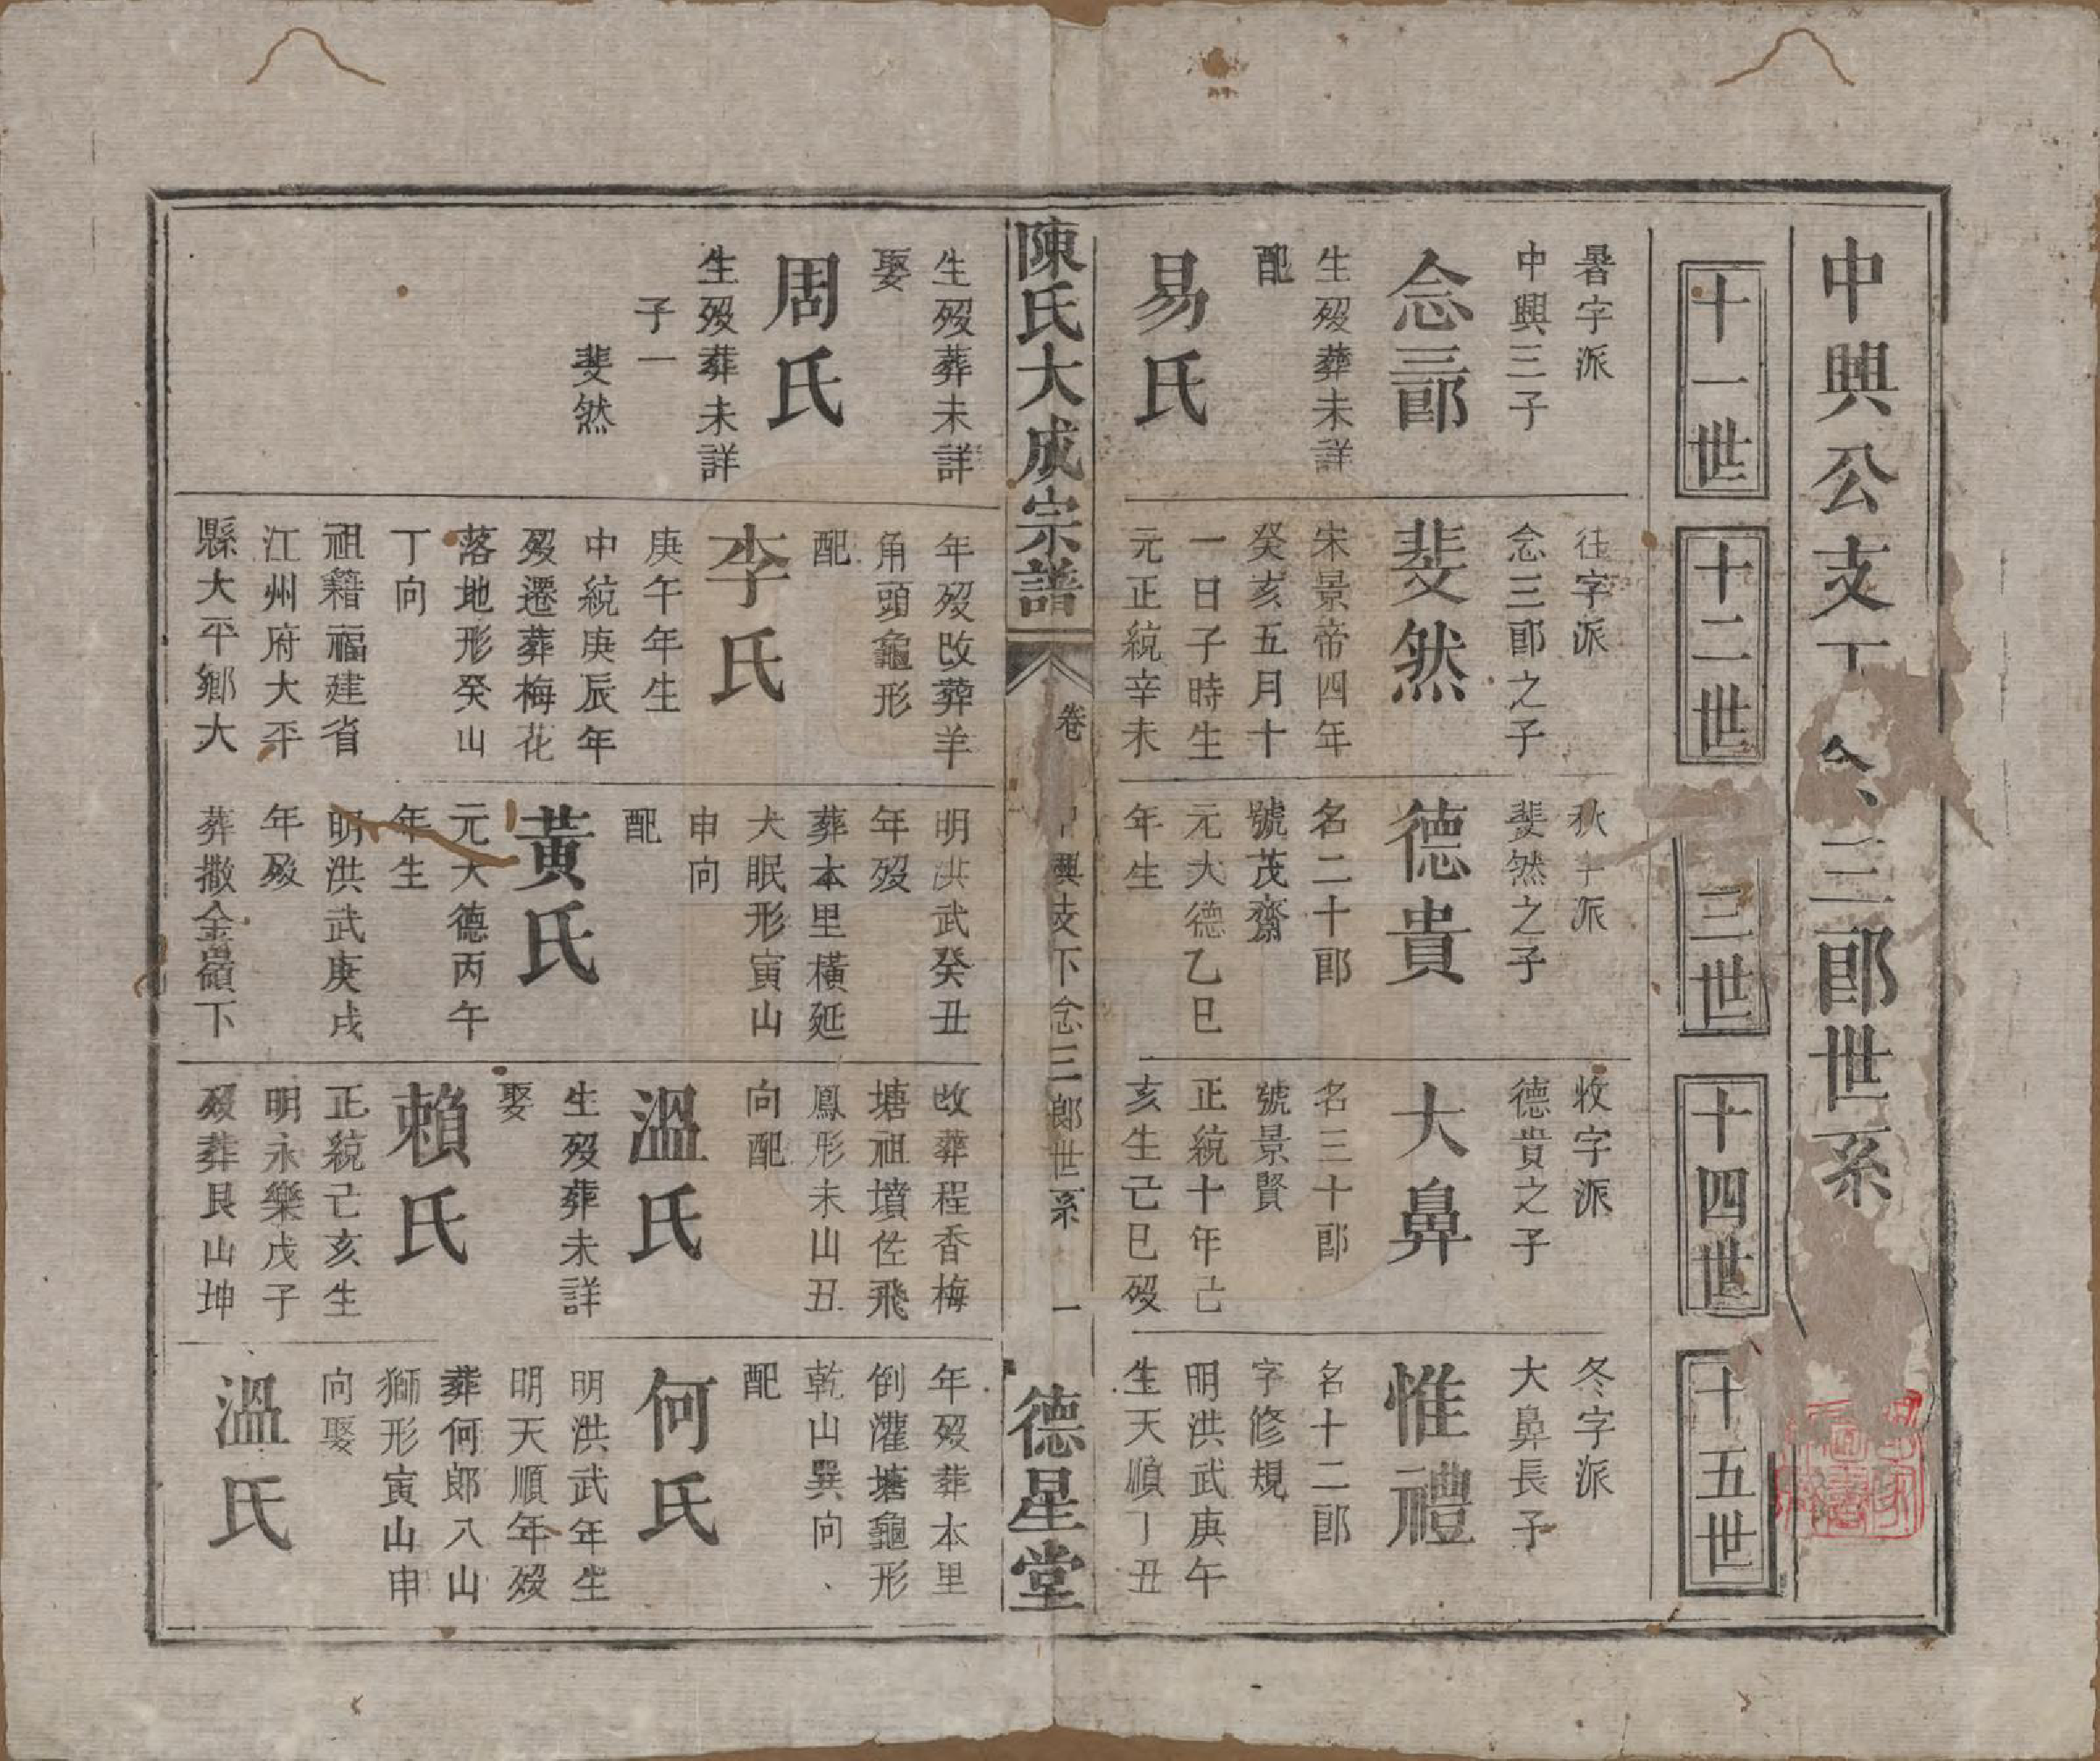 中興公支下念三郎世系
十一世
十二世
三世
十四世
十五世
暑字派
中興三子
念三郎
生歿葬未詳
配
易氏
生歿葬未詳
娶
周氏
生歿葬未詳
子一
斐然
往字派
念三郎之子
斐然
宋景帝四年
癸亥五月十
一日子時生
元正統辛未
年歿改葬羊
角頭龜形
配
李氏
庚午年生
中統庚辰年
歿遷葬梅花
落地形癸山
丁向
祖籍福建省
江州府大平
縣大平鄉大
秋字派
斐然之子
德貴
名二十郎
號茂齋
元大德乙巳
年生
明洪武癸丑
年歿
葬本里橫延
犬眠形寅山
申向
配
黃氏
元大德丙午
年生
明洪武庚戌
年歿
葬撒金嶺下
收字派
德貴之子
大鼻
名三十郎
號景賢
正統十年己
亥生己巳歿
改葬程香梅
塘祖墳佐飛
鳳形未山丑
向配
溫氏
生歿葬未詳
娶
賴氏
正統己亥生
明永樂戊子
歿葬艮山坤
冬字派
大鼻長子
惟禮
名十二郎
字修規
明洪武庚午
生天順丁丑
年歿葬本里
倒灌塘龜形
乾山巽向
配
何氏
明洪武年生
明天順年歿
葬何郎入山
獅形寅山申
向娶
溫氏
陳氏大成宗譜
卷
中興支下念三郎世系
一
德星堂